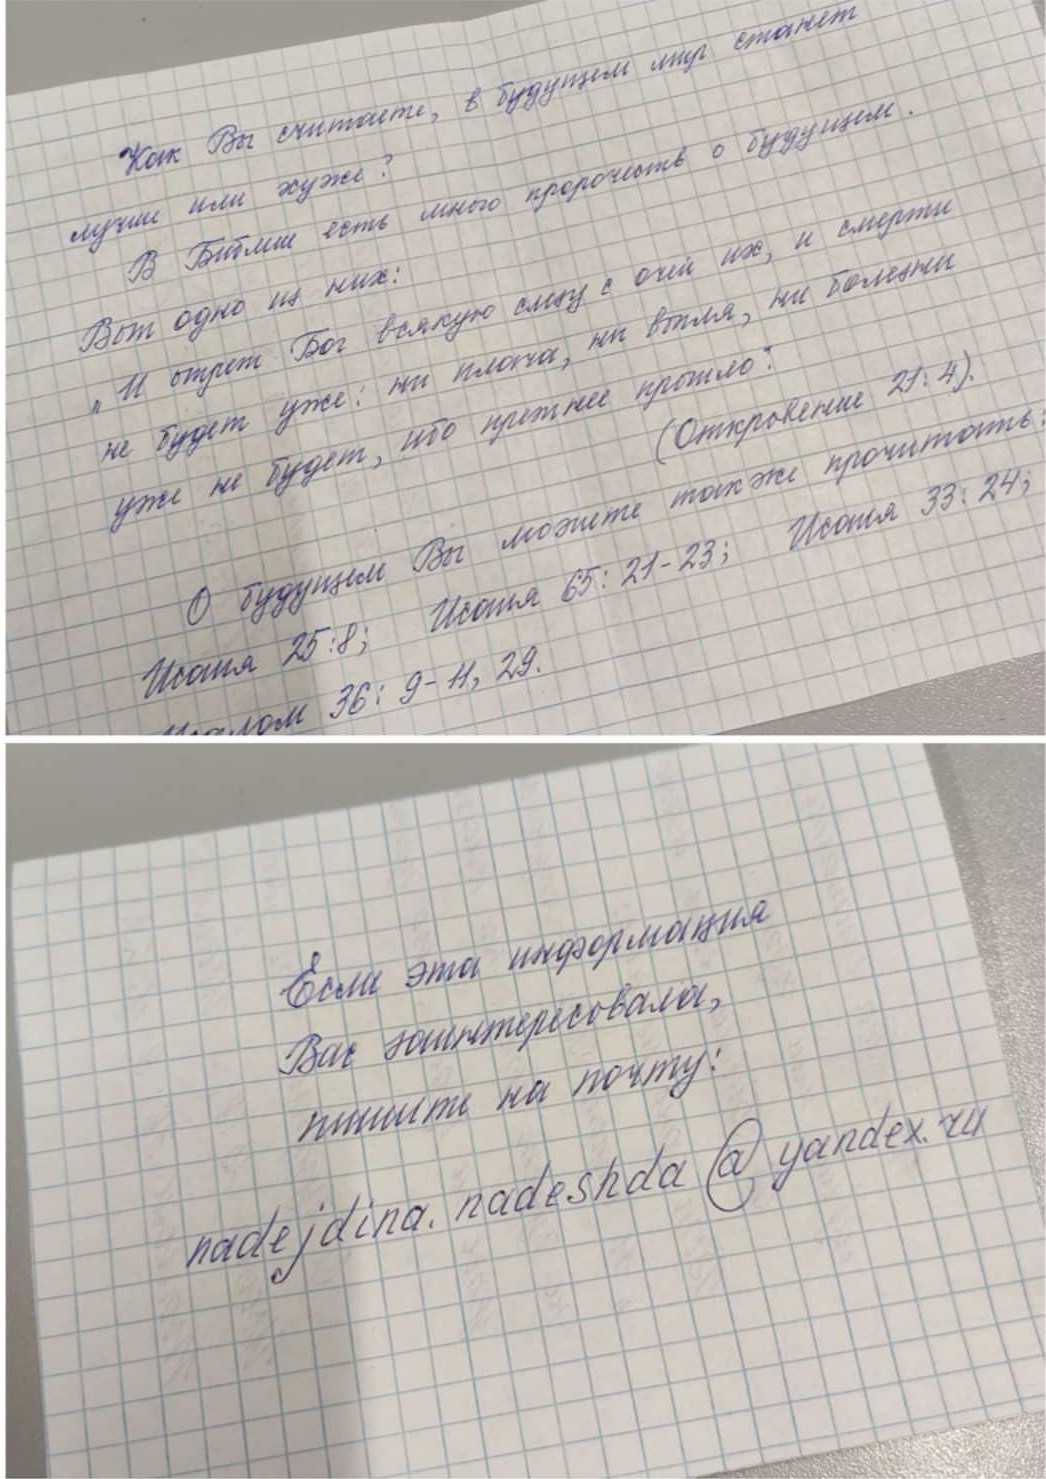 Как Вы считаете, в будущем мир станет
лучше или хуже?
В Библии есть много пророчеств о будущем.
Вот одно из них:
„И отрет Бог всякую слезу с очей их, и смерти
не будет уже: ни плача, ни вопля, ни болезни
уже не будет, ибо прежнее прошло".
(Откровение 21:4).
О будущем Вы можете также прочитать:
Исаия 25:8; Исаия 65:21-23; Исаия 33:24;
Псалом 36:9-11, 29.
Если эта информация
Вас заинтересовала,
пишите на почту:
nadejdina.nadeshda@yandex.ru